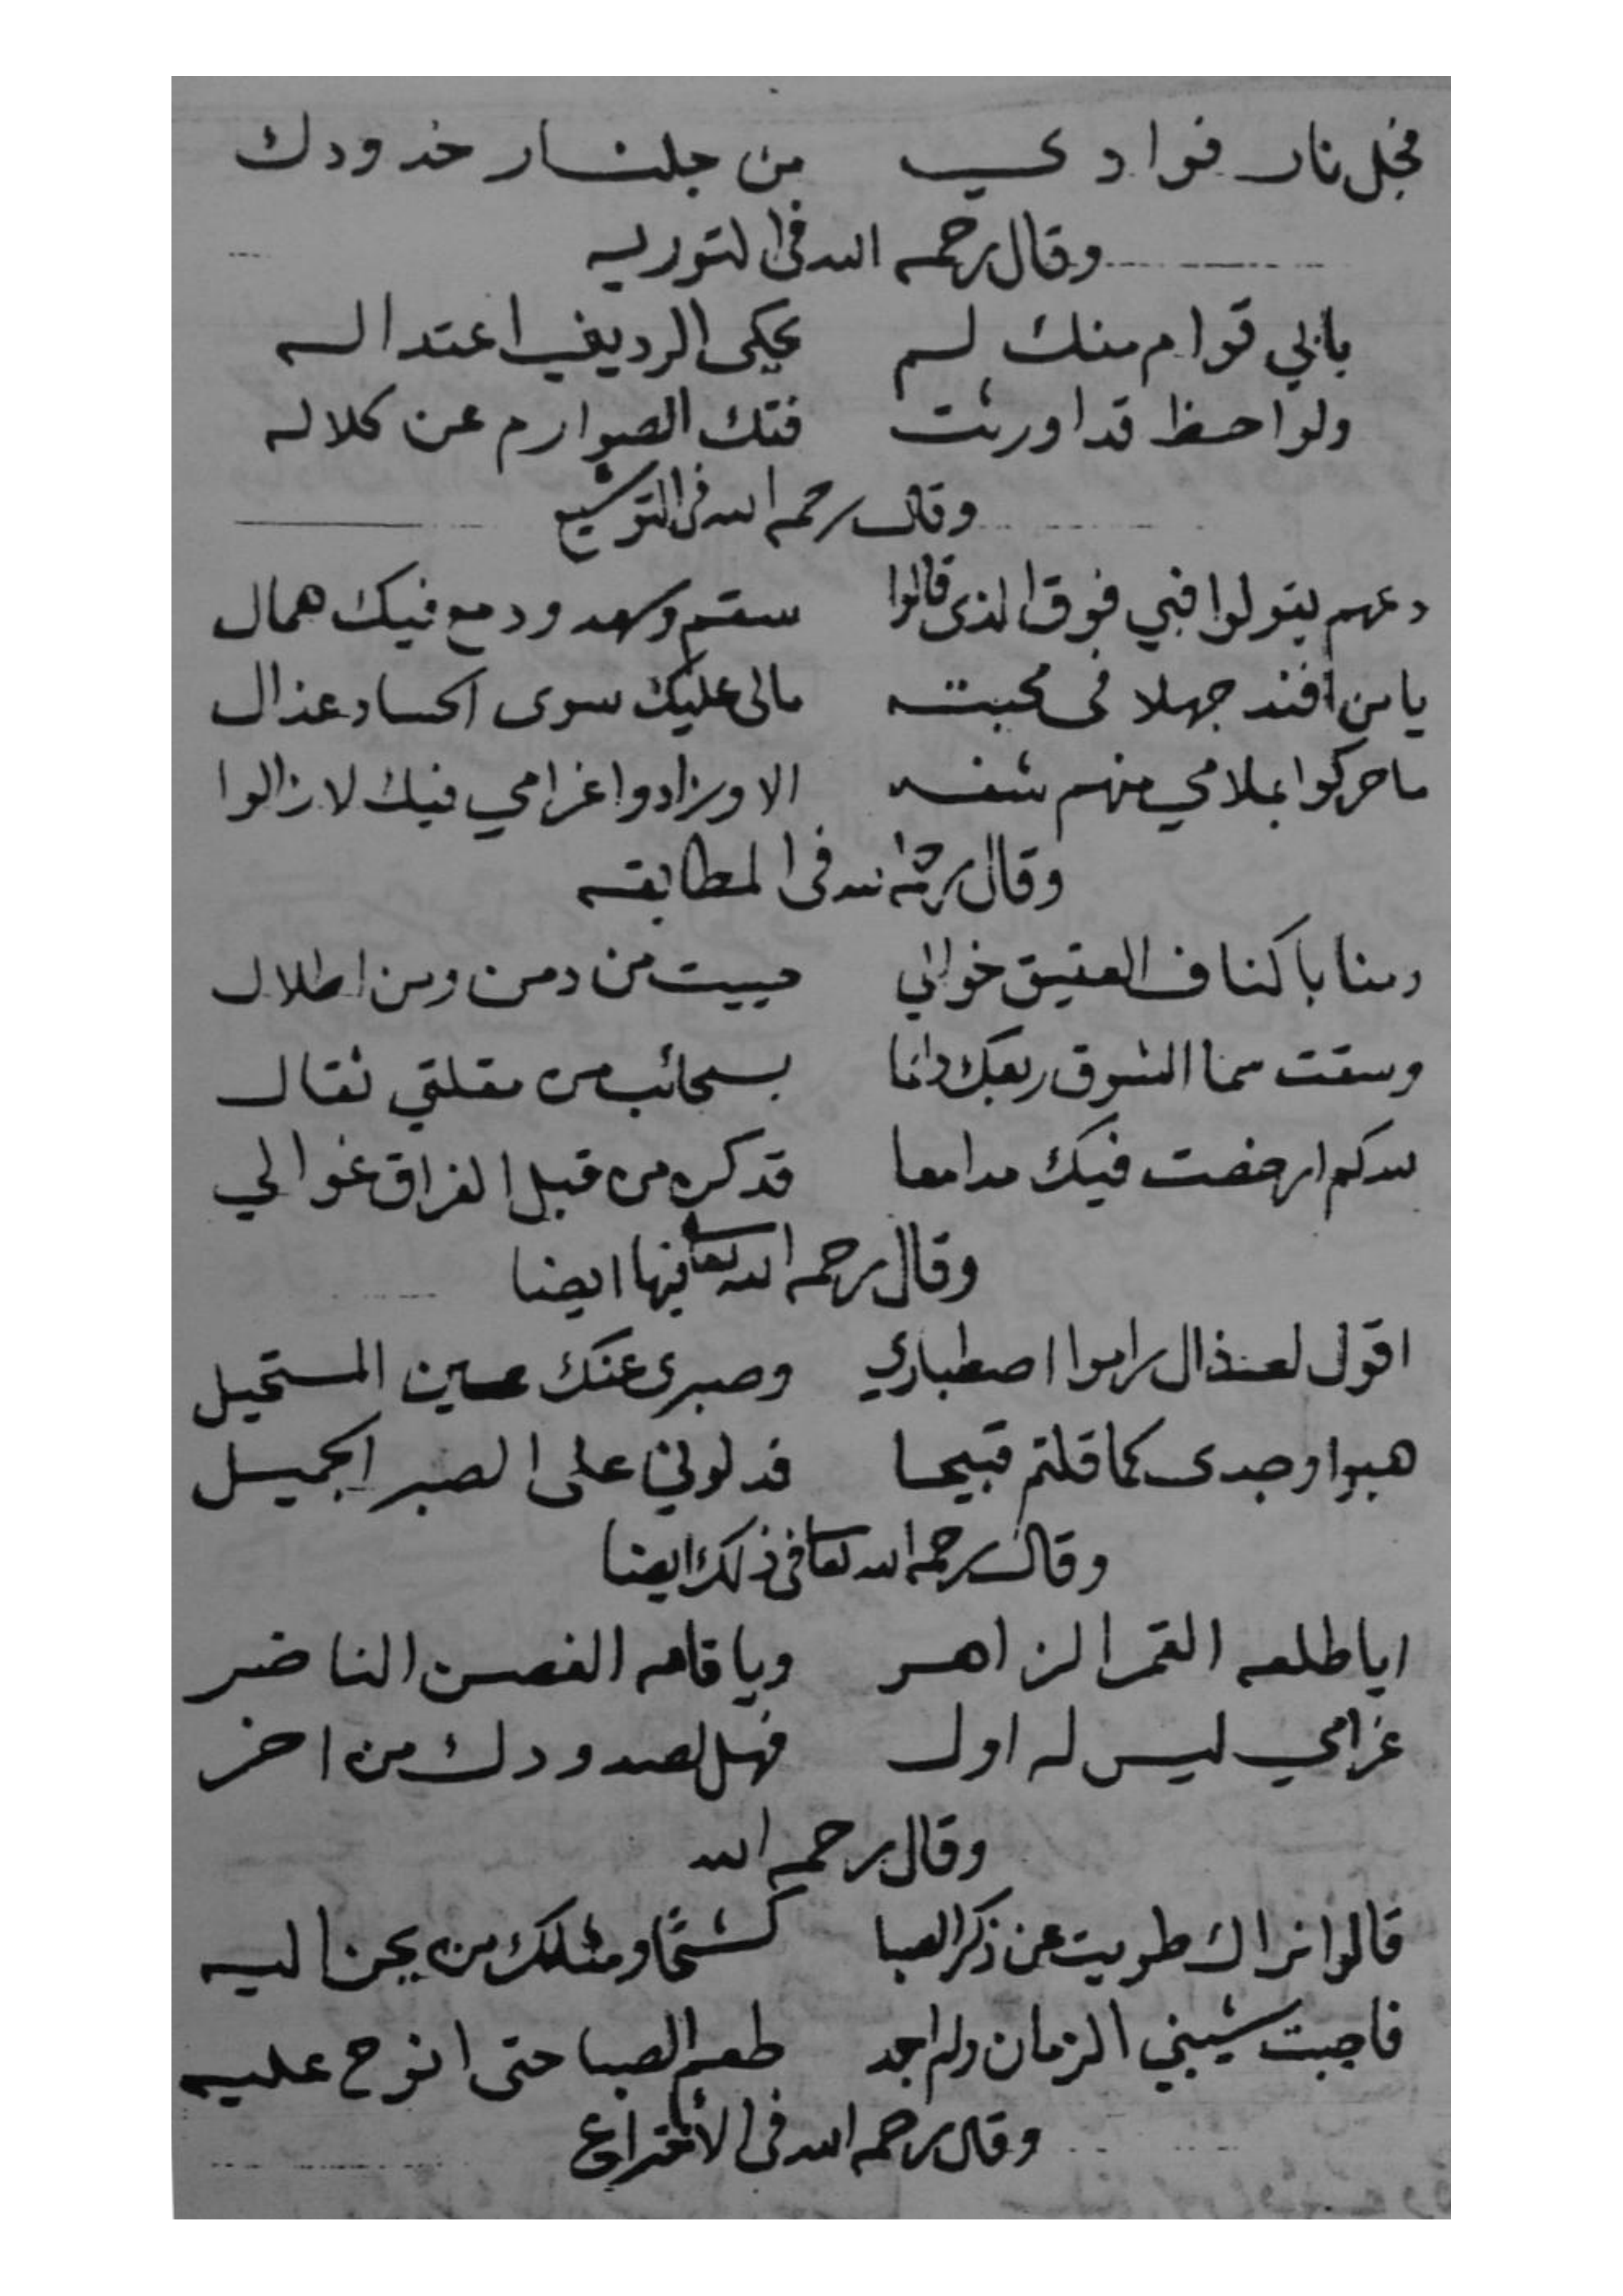 فجل نار فوادي من جلنار خدودك
وقال رحمه الله في التوريه
بابي قوام منك لم يحكي الرديني اعتداله
ولواحظ قد اورثت فتك الصوارم عن كلاله
وقال رحمه الله في التوشيع
دعهم يقولوا فبي فوق الذي قالوا سقم وسهد ودمع فيك همال
يا من افند جهلا في محبته مالى عليك سوى الحساد عذال
ما حركوا بملامي منهم شفه الا وزادوا غرامي فيك لا زالوا
وقال رحمه الله في المطابقه
دمنا باكناف العقيق خوالي حييت من دمن ومن اطلال
وسقت سما الشوق ربعك دائما بسحائب من مقلتي ثقال
لله كم ارخصت فيك مدامعا قد كن من قبل الفراق غوالي
وقال رحمه الله تعا فيها ايضا
اقول لعذال راموا اصطباري وصبرى عنك عين المستحيل
هبوا وجدى كما قلتم قبيحا فدلوني على الصبر الجميل
وقال رحمه الله تعا في ذلك ايضا
ايا طلعه القمر الزاهر ويا قامه الغصن الناضر
غرامي ليس له اول فهل لصدودك من اخر
وقال رحمه الله
قالوا نراك طويت عن ذكر الصبا كشحا ومثلك من يحن اليه
فاجبت شيبني الزمان ولم اجد طعم الصبا حتى انوح عليه
وقال رحمه الله في الاختراع